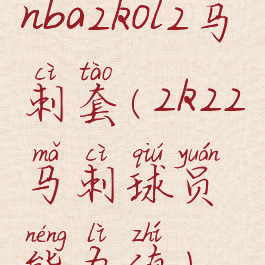 nba2kol2马
cì tào
刺套(2k22
mǎ cì qiú yuán
马刺球员
néng lì zhí
能力值)